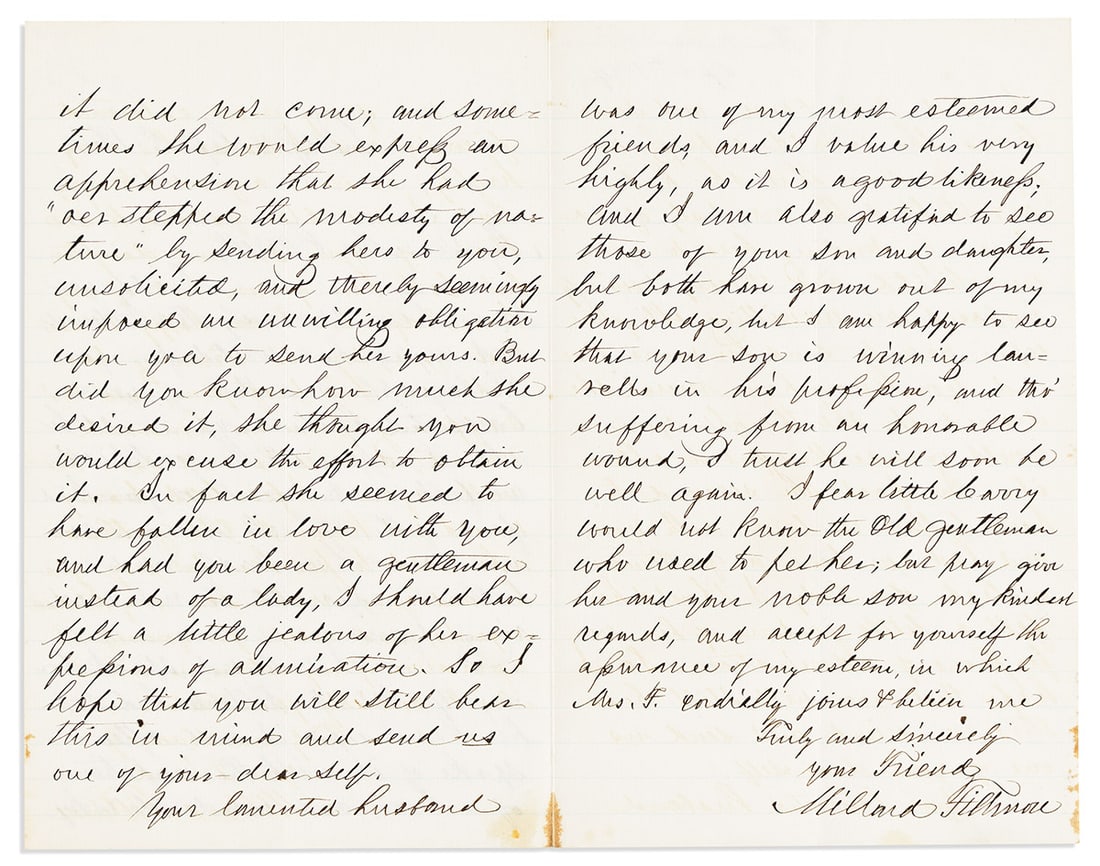 it did not come; and some=
times she would express an
apprehension that she had
"oer stepped the modesty of na=
ture" by sending hers to you,
unsolicited, and thereby seemingly
imposed an unwilling obligation
upon you to send her yours. But
did you know how much she
desired it, she thought you
would excuse the effort to obtain
it. In fact she seemed to
have fallen in love with you,
and had you been a gentleman
instead of a lady, I should have
felt a little jealous of her ex=
pressions of admiration. So I
hope that you will still bear
this in mind and send us
one of your dear self.
Your lamented husband
was one of my most esteemed
friends, and I value his very
highly, as it is a good likeness;
and I am also gratified to see
those of your son and daughter,
but both have grown out of my
knowledge, but I am happy to see
that your son is winning lau=
rells in his profession, and tho'
suffering from an honorable
wound, I trust he will soon be
well again. I fear little Carry
would not know the Old gentleman
who used to pet her; but pray give
her and your noble son my kindest
regards, and accept for yourself the
assurance of my esteem, in which
Mrs. F. cordially joins & believe me
Truly and sincerely
your Friend
Millard Fillmore